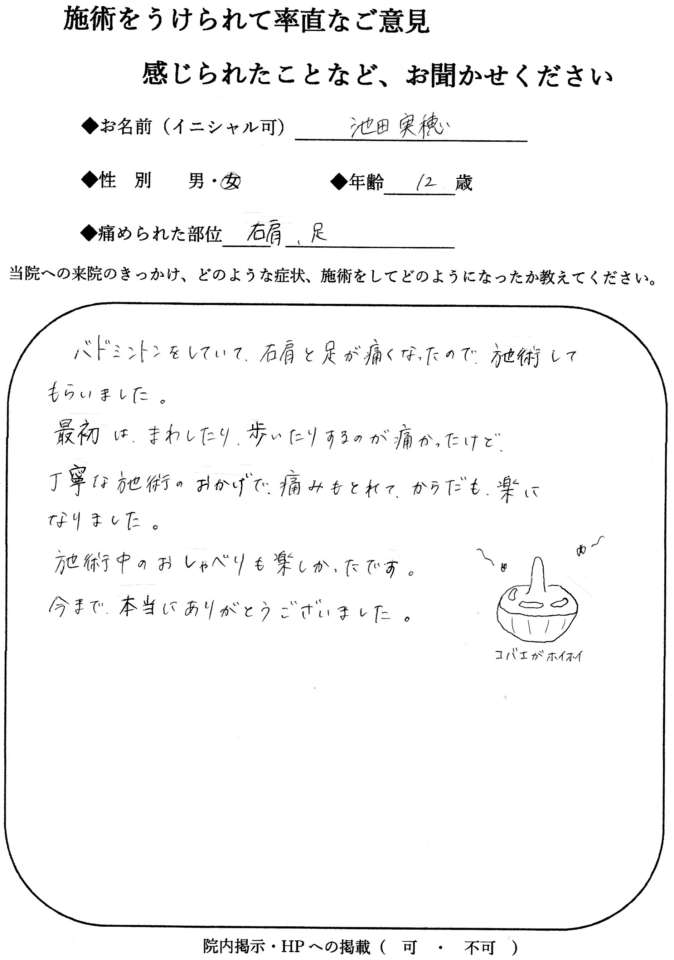 施術をうけられて率直なご意見
感じられたことなど、お聞かせください
◆お名前（イニシャル可） 池田実穂
◆性 別 男・女 ◆年齢 12 歳
◆痛められた部位 右肩、足
当院への来院のきっかけ、どのような症状、施術をしてどのようになったか教えてください。
バドミントンをしていて、右肩と足が痛くなったので、施術して
もらいました。
最初は、まわしたり、歩いたりするのが痛かったけど、
丁寧な施術のおかげで、痛みもとれて、からだも、楽に
なりました。
施術中のおしゃべりも楽しかったです。
今まで、本当にありがとうございました。
コバエがホイホイ
院内掲示・HPへの掲載（ 可 ・ 不可 ）